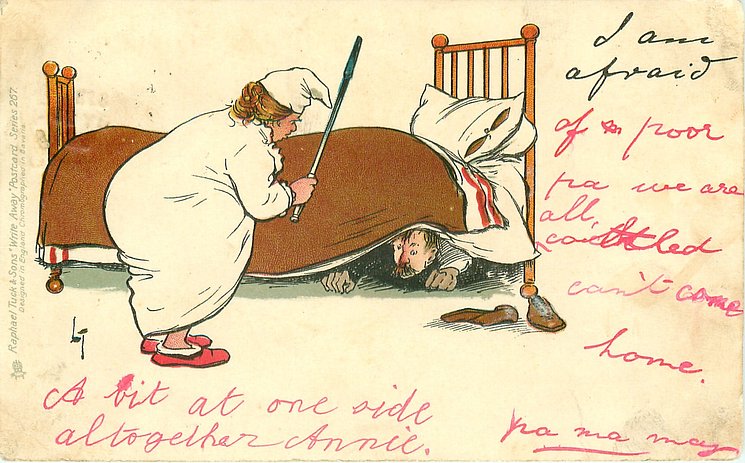 I am
afraid
of poor
pa we are
all
can't come
home.
A bit at one side
altogether Annie.
pa ma may
Raphael Tuck & Sons "Write Away" Postcard Series 267.
Designed in England Chromographed in Bavaria.